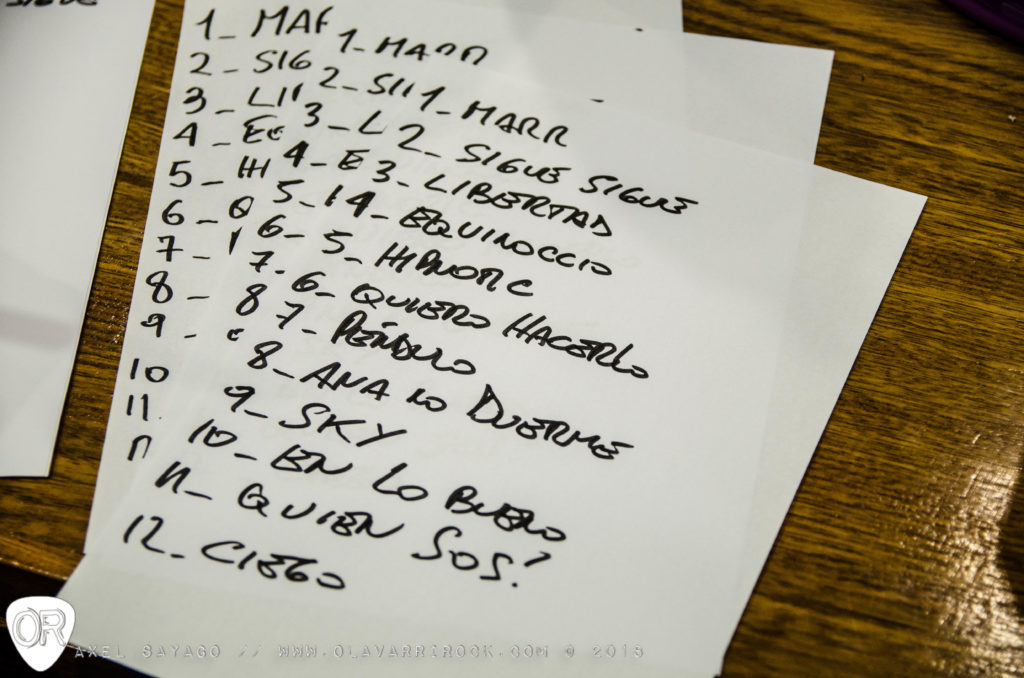 SIGUE
1_ MAR
2_ SIG
3_ LI
4_ EQ
5_ HI
6_ Q
7_
8_
9_
10
11.
1_ MARR
2_ SI
3_ L
4_ E
5_
6_
7_
8
1_ MARR
2_ SIGUE SIGUE
3_ LIBERTAD
4_ EQUINOCCIO
5_ HIPNOTIC
6_ QUIERO HACERLO
7_ PÉNDULO
8_ ANA NO DUERME
9_ SKY
10_ EN LO BUENO
11_ QUIEN SOS?
12_ CIEGO
OR
AXEL SAYAGO // WWW.OLAVARRIROCK.COM © 2013